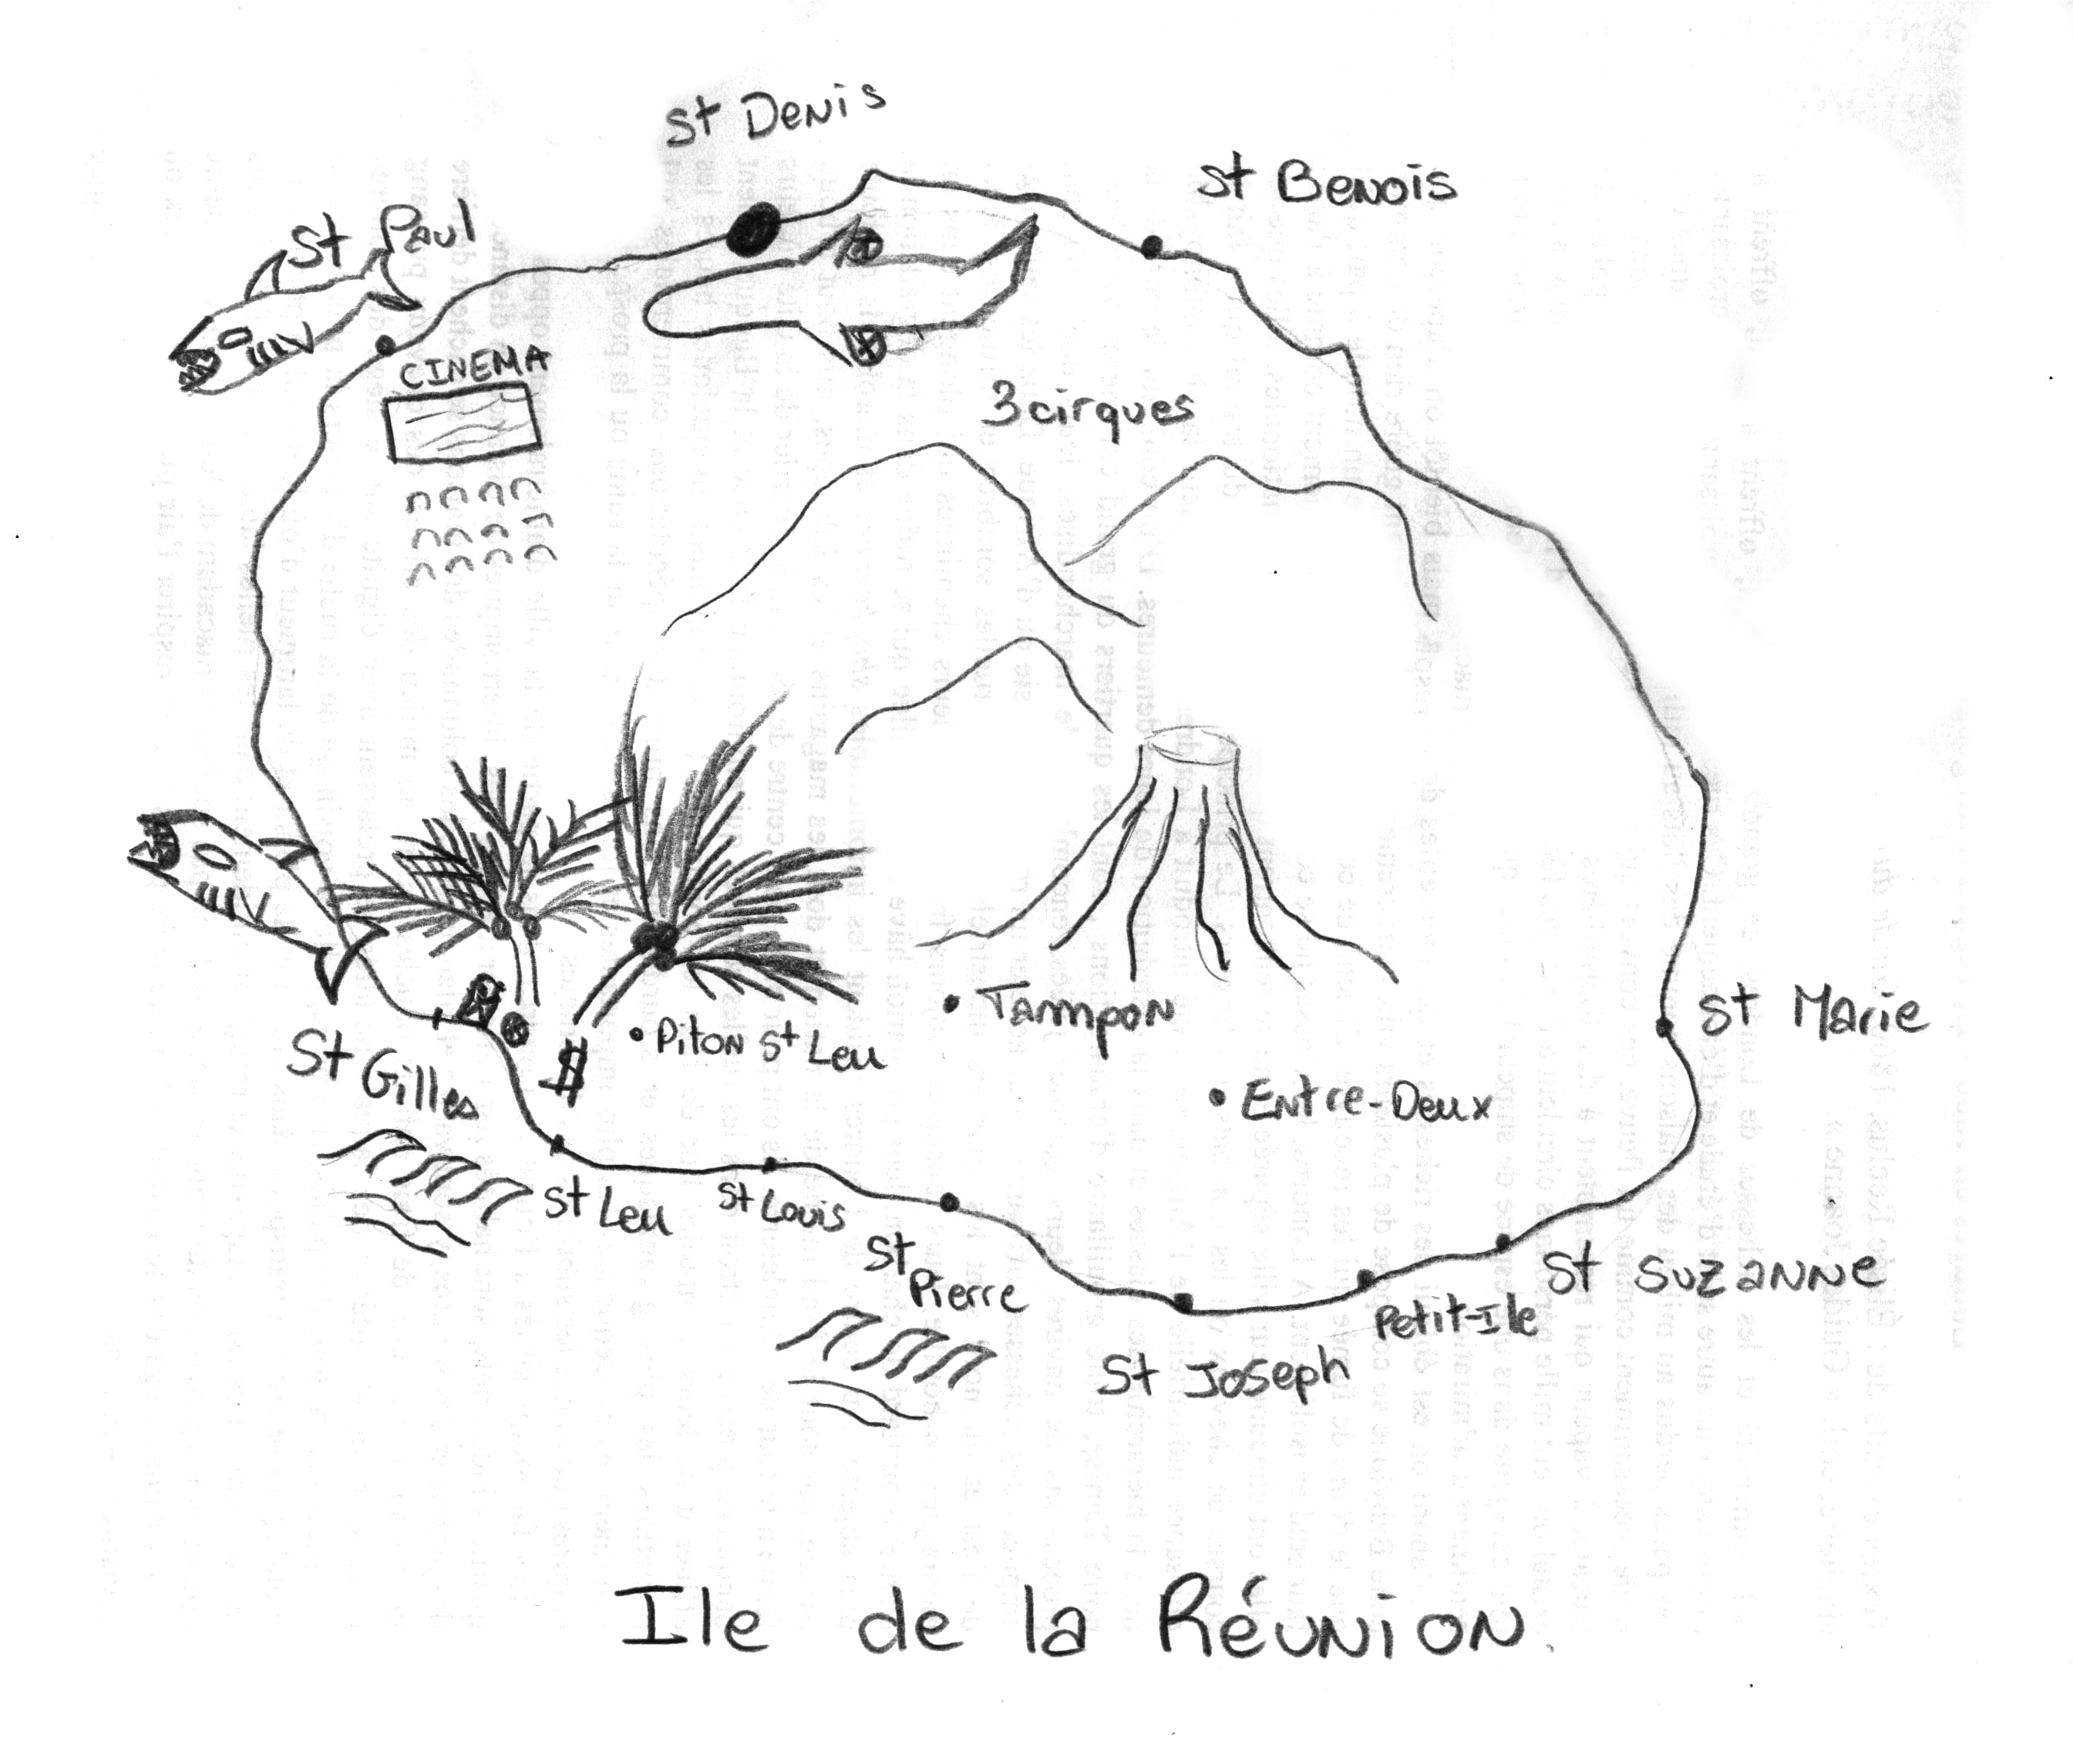 St Denis
St Benois
St Paul
CINEMA
3 cirques
Tampon
St Marie
Piton St Leu
St Gilles
Entre-Deux
St Leu
St Louis
St Pierre
St Suzanne
Petit-Ile
St Joseph
Ile de la Réunion.